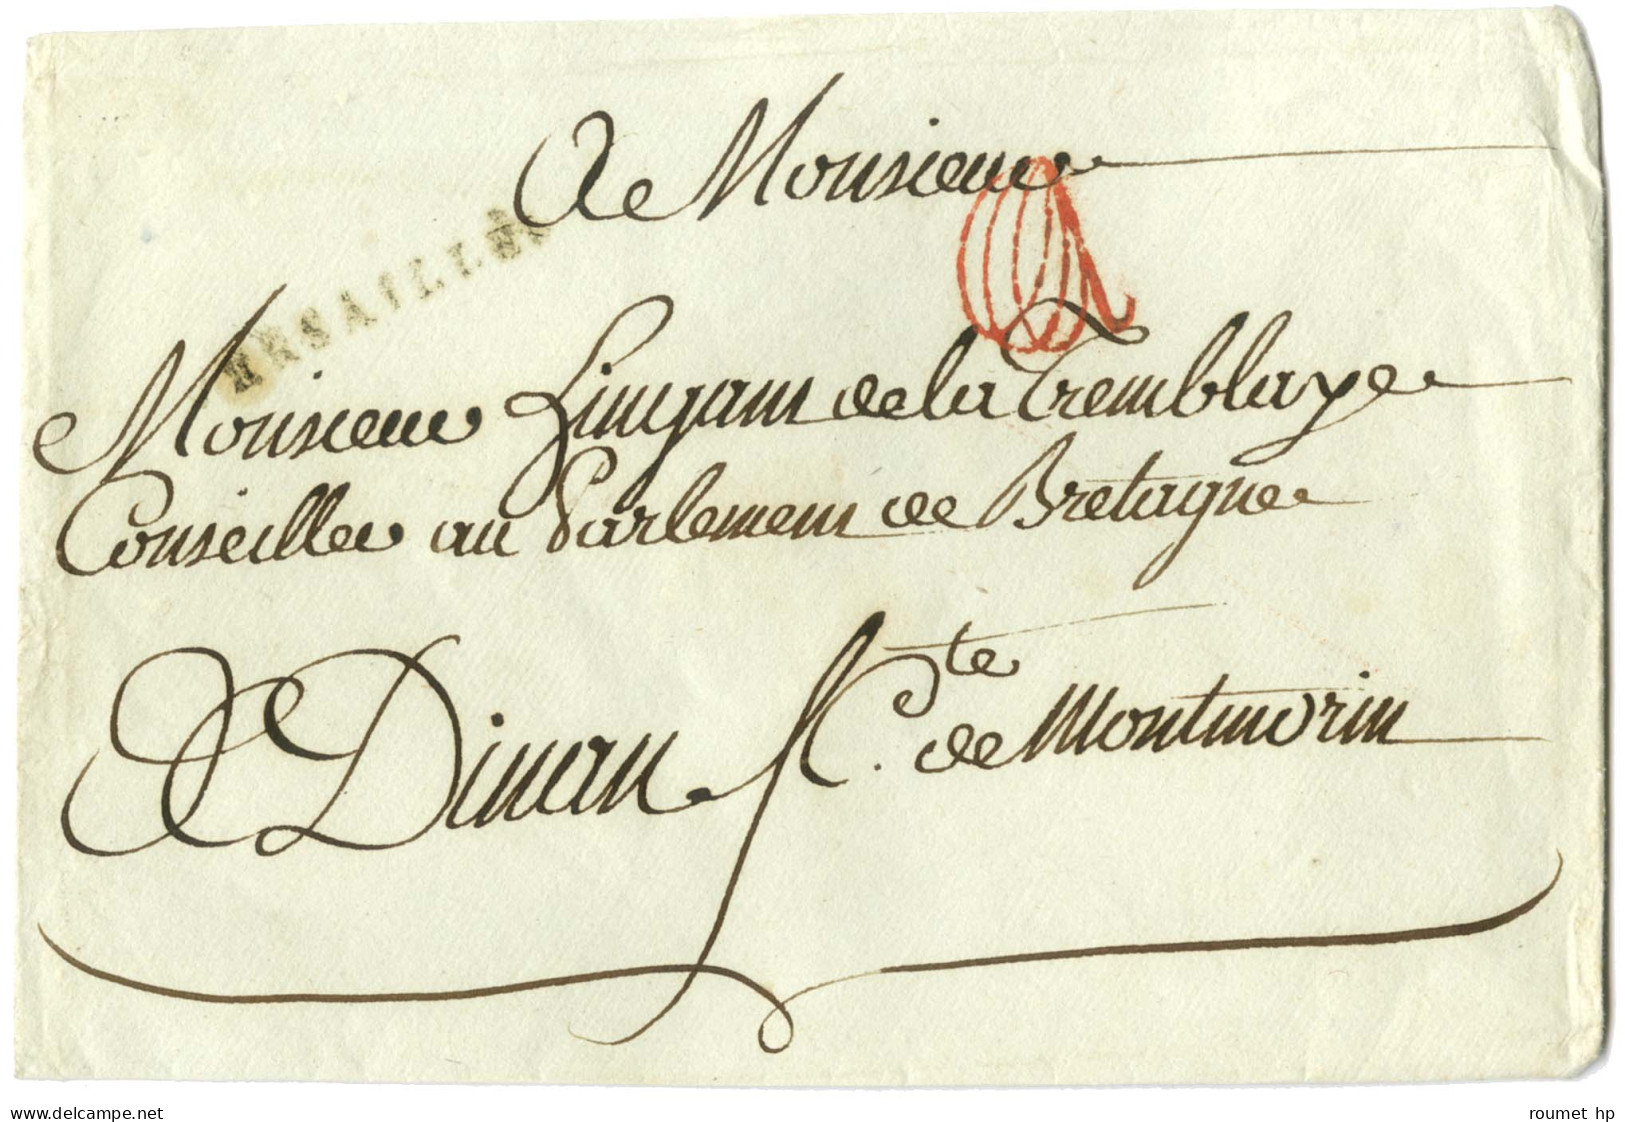 A Monsieur
VERSAILLES
Monsieur Lingam de la Tremblaye
Conseiller au Parlement de Bretagne
A Dinan
Cte. de Montmorin
www.delcampe.net
roumet hp